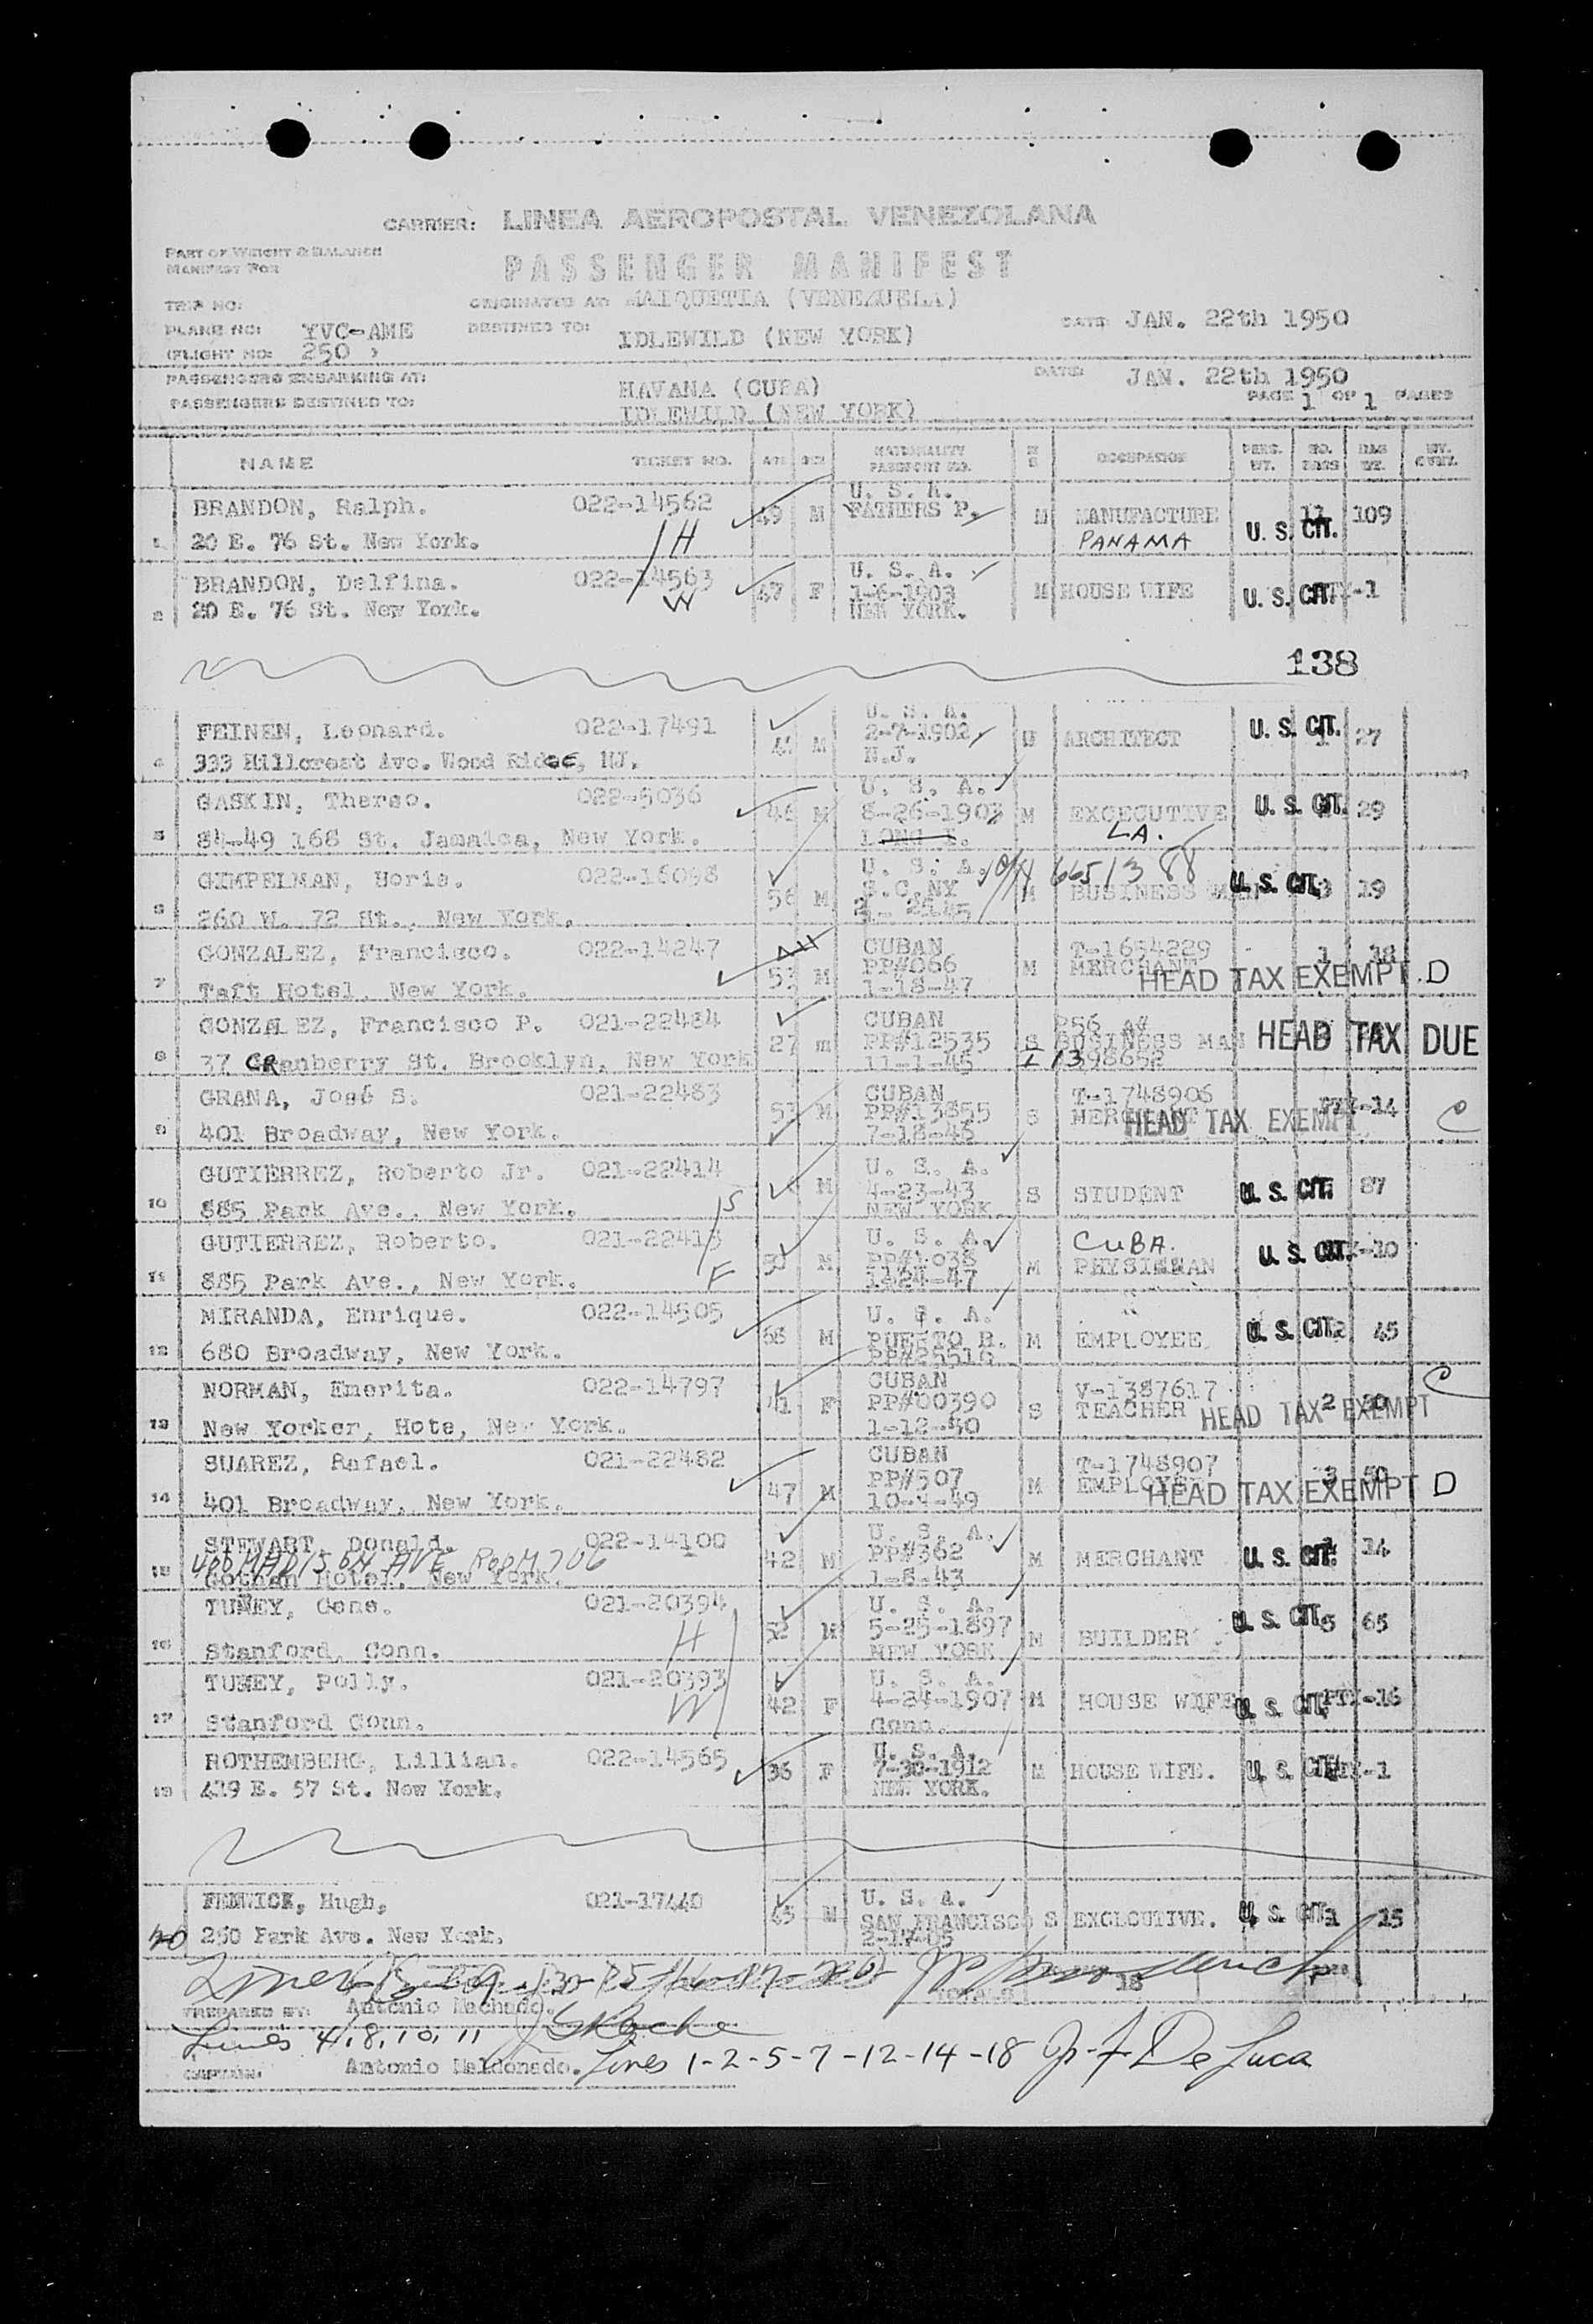 CARRIER: LINEA AEROPOSTAL VENEZOLANA
PART OF WEIGHT & BALANCE
MANIFEST FOR
PASSENGER MANIFEST
TRIP NO:
ORIGINATED AT: MAIQUETIA (VENEZUELA)
PLANE NO: YVC-AME
DESTINED TO: IDLEWILD (NEW YORK)
DATE JAN. 22th 1950
(FLIGHT NO: 250 )
PASSENGERS EMBARKING AT: HAVANA (CUBA)
DATE: JAN. 22th 1950
PASSENGERS DESTINED TO: IDLEWILD (NEW YORK)
PAGE 1 OF 1 PAGES
NAME TICKET NO. AGE SEX NATIONALITY PASSPORT NO. M S OCCUPATION PERS. WT. NO. BAGS BAG WT.
BRANDON, Ralph. 022-14562 49 M U. S. A. FATHERS P. M MANUFACTURE 11 109
1 20 E. 76 St. New York. H PANAMA U. S. CIT.
BRANDON, Delfina. 022-14563 47 F U. S. A. 1-6-1903 NEW YORK. M HOUSE WIFE U. S. CIT. -1
2 20 E. 76 St. New York. W
138
FEINEN, Leonard. 022-17491 M U. S. A. 2-7-1902 N.J. ARCHITECT U. S. CIT. 1 27
4 333 Hillcrest Ave. Wood Ridge, NJ.
GASKIN, Therso. 022-5036 46 M U. S. A. 8-26-1903 LONG I. M EXCECUTIVE U. S. CIT. 29
5 84-49 168 St. Jamaica, New York. LA.
GIMPELMAN, Horis. 022-16098 56 M U. S. A. S.C.NY M BUSINESS MAN U. S. CIT. 3 19
6 260 W. 72 St., New York.
GONZALEZ, Francisco. 022-14247 53 M CUBAN PP#066 1-18-47 M T-1654229 MERCHANT 1 18
7 Taft Hotel, New York. HEAD TAX EXEMPT D
GONZALEZ, Francisco P. 021-22484 27 m CUBAN PP#12535 11-1-45 S BUSINESS MAN HEAD TAX DUE
8 37 CRanberry St. Brooklyn, New York
GRANA, José S. 021-22483 53 M CUBAN PP#13855 7-18-46 S T-1748906 MERCHANT -14
9 401 Broadway, New York. HEAD TAX EXEMPT C
GUTIERREZ, Roberto Jr. 021-22414 M U. S. A. 4-23-43 NEW YORK S STUDENT U. S. CIT. 87
10 885 Park Ave., New York. S
GUTIERREZ, Roberto. 021-22413 M U. S. A. PP#1038 1-24-47 M CUBA. U. S. CIT. -10
11 885 Park Ave., New York. F
MIRANDA, Enrique. 022-14505 68 M U. S. A. PUERTO R. M EMPLOYEE U. S. CIT. 2 45
12 680 Broadway, New York.
NORMAN, Emerita. 022-14797 41 F CUBAN PP#00390 1-12-50 S V-1387617 TEACHER 2 30 C
13 New Yorker, Hote, New York. HEAD TAX EXEMPT
SUAREZ, Rafael. 021-22482 47 M CUBAN PP#507 10-4-49 M T-1748907 EMPLOYEE 3 50
14 401 Broadway, New York. HEAD TAX EXEMPT D
STEWART, Donald. 022-14100 42 M U. S. A. PP#362 1-8-43 M MERCHANT U. S. CIT. 14
400 MADISON AVE ROOM 706
15 Gotham Hotel, New York.
TUNEY, Gene. 021-20394 52 M U. S. A. 5-25-1897 NEW YORK M BUILDER U. S. CIT. 5 65
16 Stanford, Conn. H
TUNEY, Polly. 021-20393 42 F U. S. A. 4-24-1907 Conn. M HOUSE WIFE U. S. CIT. -16
17 Stanford Conn. W
ROTHEMBERG, Lillian. 022-14565 36 F U. S. A. 7-30-1912 NEW YORK. M HOUSE WIFE. U. S. CIT. -1
18 419 E. 57 St. New York.
FENWICK, Hugh, 021-17440 45 M U. S. A. SAN FRANCISCO 2-17-05 S EXCLCUTIVE. U. S. CIT. 1 15
20 250 Park Ave. New York.
TOTALS 18
PREPARED BY: Antonio Machado.
Lines 4, 8, 10, 11
CAPTAIN: Antonio Maldonado. Lines 1-2-5-7-12-14-18 De Luca